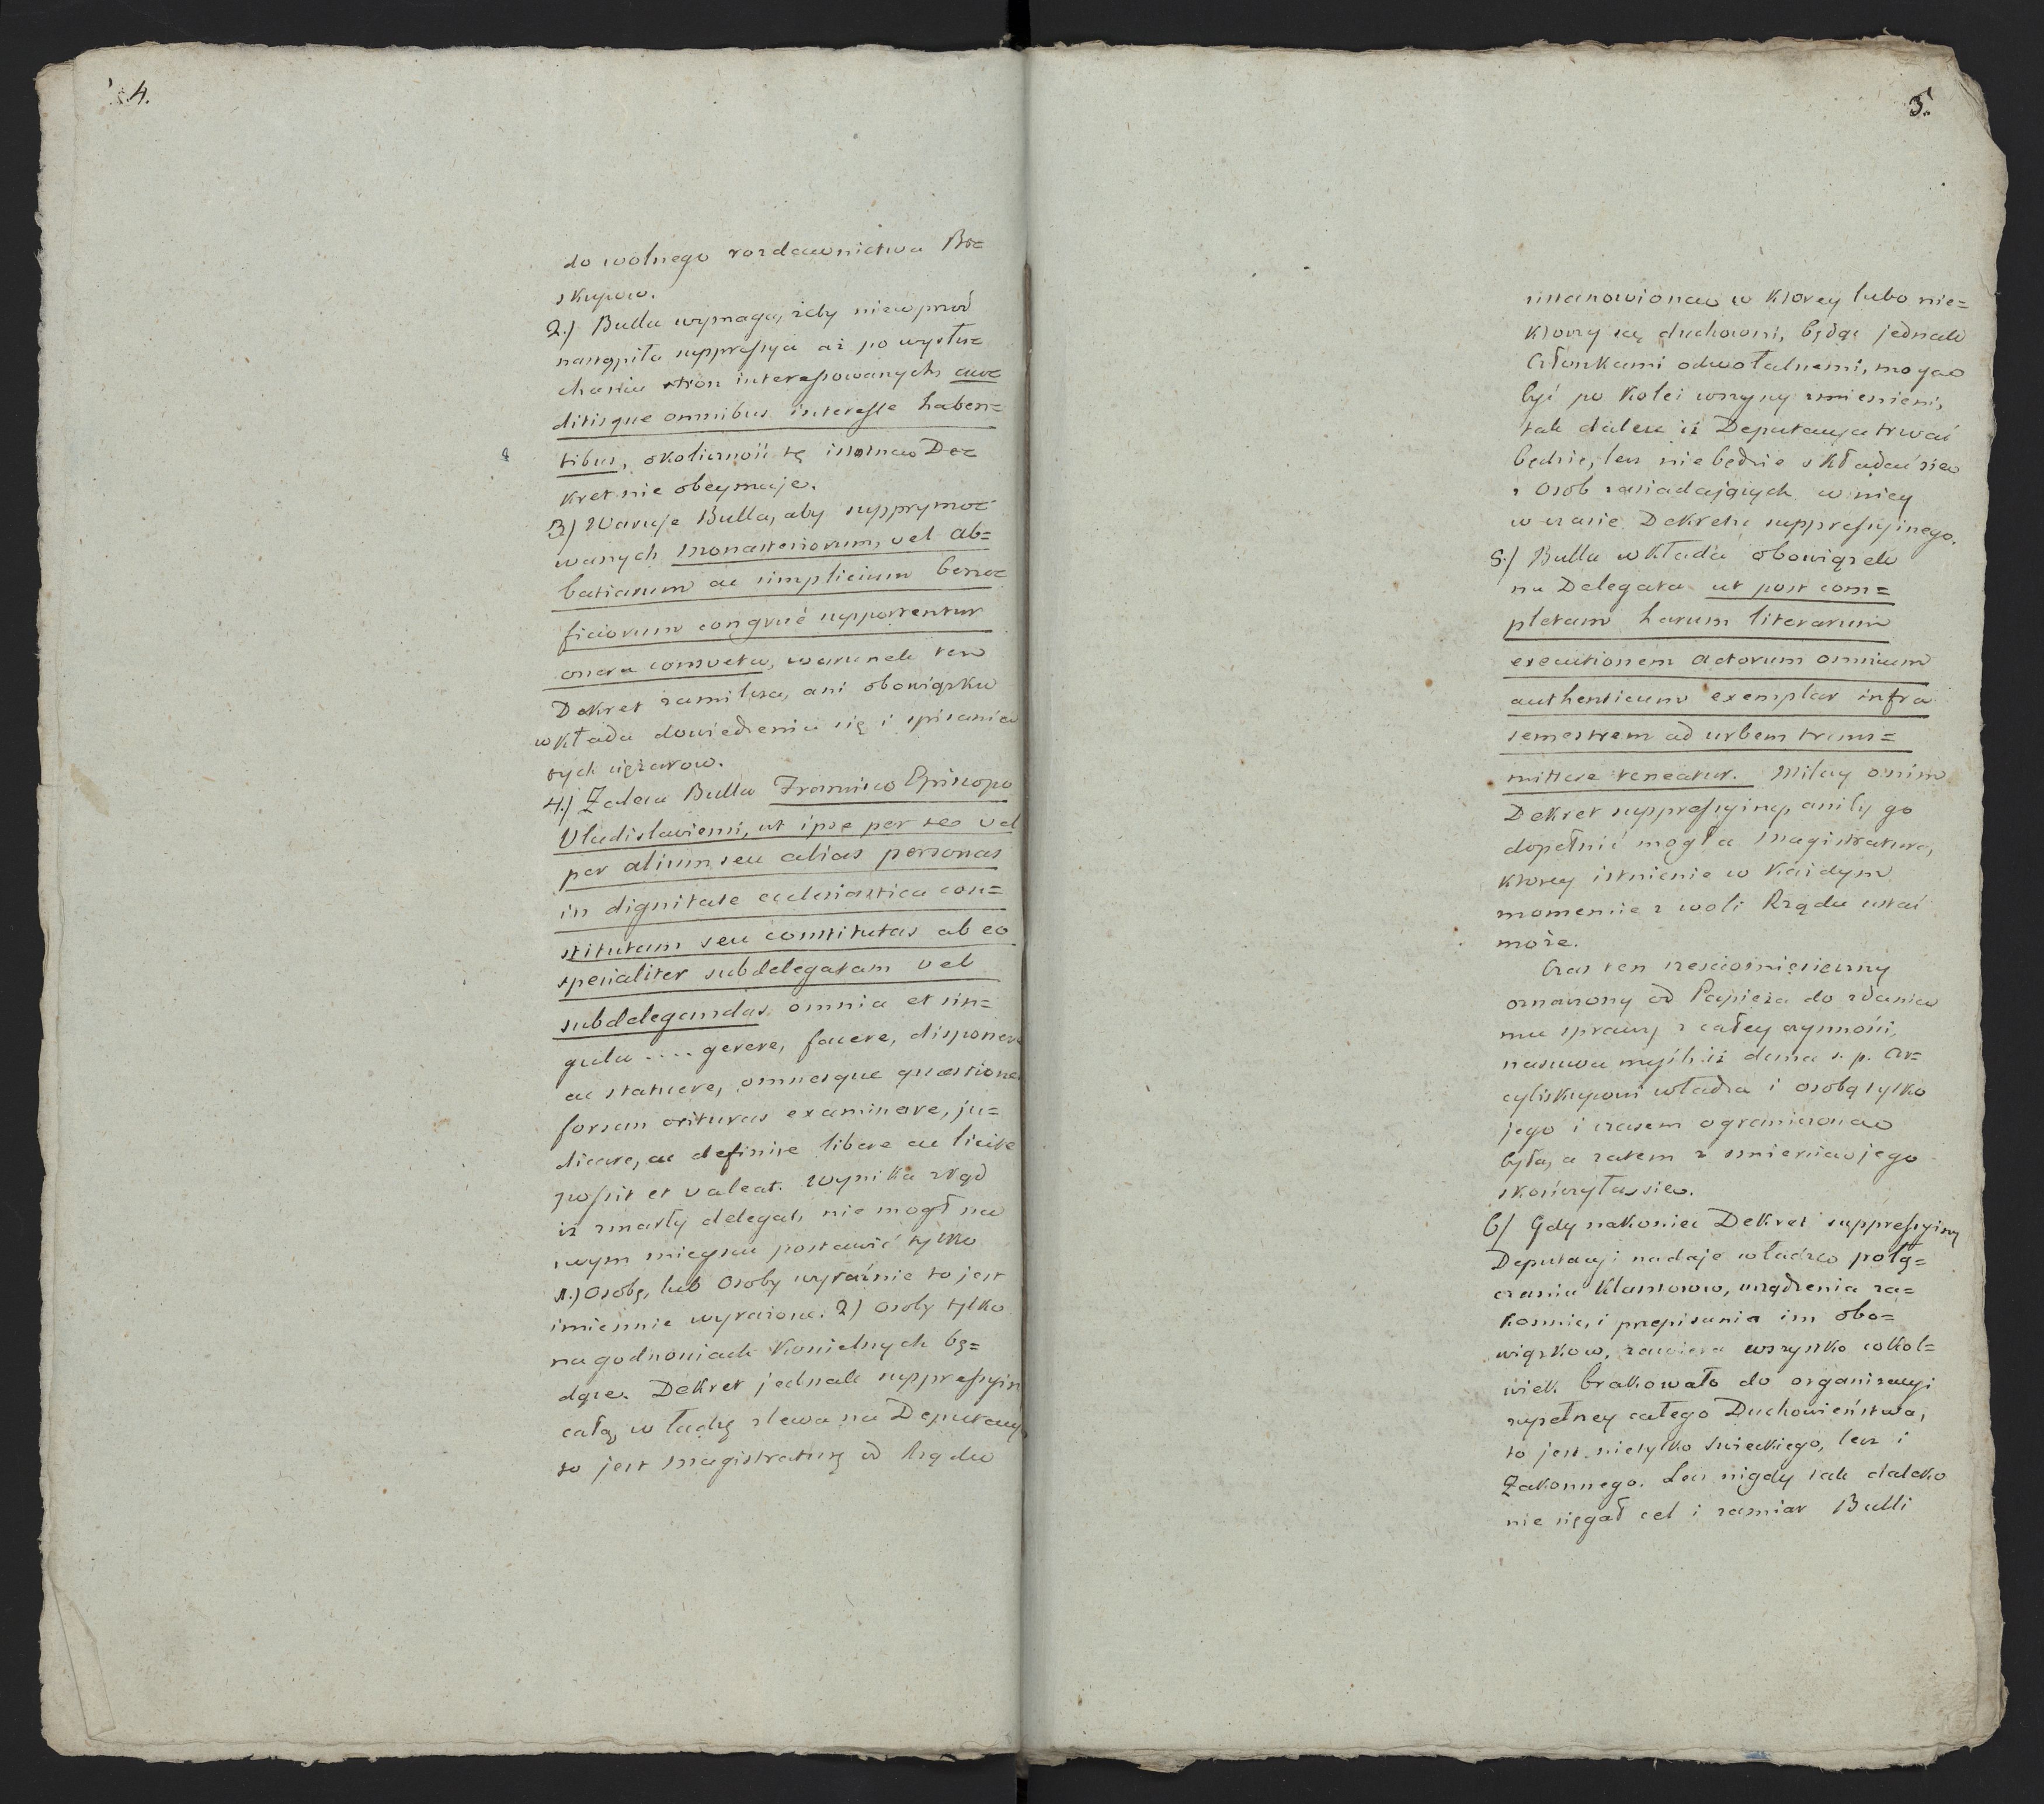 4.
do wolnego rozdawnictwa Bi=
skupow.
2.) Bulla wymaga, żeby niewprzod
nastąpiła suppressya aż po wysłu=
chaniu stron interessowanych au=
ditisque omnibus interesse haben=
tibus, okoliczność tę istotną De=
kret nie obeymuje.
3) Waruje Bulla, aby supprymo=
wanych monasteriorum, vel ab=
batiarum ac simplicium bene=
ficiorum congruè supportentur
onera consveta, warunek ten
Dekret zamilcza, ani obowiązku
wkłada dowiedzenia się i spisania
tych ciężarow.
4.) Zaleca Bulla Francisco Episcopo
Vladislaviensi, ut ipse per se vel
per alium seu alias personas
in dignitate ecclesiastica con=
stitutam seu constitutas ab eo
specialiter subdelegatam vel
subdelegandas omnia et sin=
gula .... gerere, facere, disponere
ac statuere, omnesque quæstiones
forsan orituras examinare, ju=
dicare, ac definire libere ac licite
possit et valeat. Wynika ztąd
iż zmarły delegat, nie mogł na
swym mieyscu postawić tylko
1.) Osobę, lub Osoby wyraźnie to jest
imiennie wyrażone. 2) Osoby tylko
na godnościach Kościelnych bę=
dące. Dekret jednak suppressyin
całą władzę zlewa na Deputacyą
to jest Magistraturę od Rządu
5.
stanowioną w ktorey lubo nie=
ktorzy są duchowni, będąc jednak
Członkami odwołalnemi, mogą
być po kolei wszyscy zmienieni,
tak dalece iż Deputacya trwać
będzie, lecz nie będzie składać się
z Osob zasiadających w niey
w czasie Dekretu suppressyinego.
5.) Bulla wkłada obowiązek
na Delegata ut post com=
pletam harum literarum
executionem actorum omnium
authenticum exemplar infra
semestrem ad urbem trans=
mittere teneatur. Milczy o nim
Dekret suppressyiny, aniby go
dopełnić mogła Magistratura,
ktorey istnienie w każdym
momencie z woli Rządu ustać
może.
Czas ten sześciomiesięczny
oznaczony od Papieża do zdania
mu sprawy z całey czynności,
nasuwa myśl iż dana ś. p. Ar=
cybiskupowi władza i osobą tylko
jego i czasem ograniczona
była, a zatem z śmiercią jego
skończyła się.
6) Gdy nakoniec Dekret suppressyiny
Deputacyi nadaje władzę połą=
czenia Klasztorow, urządzenia za=
konnic, i przepisania im obo=
wiązkow, zawiera wszystko cokol=
wiek brakowało do organizacyi
zupełney całego Duchowieństwa,
to jest nietylko Swieckiego, lecz i
Zakonnego. Lecz nigdy tak daleko
nie sięgał cel i zamiar Bulli